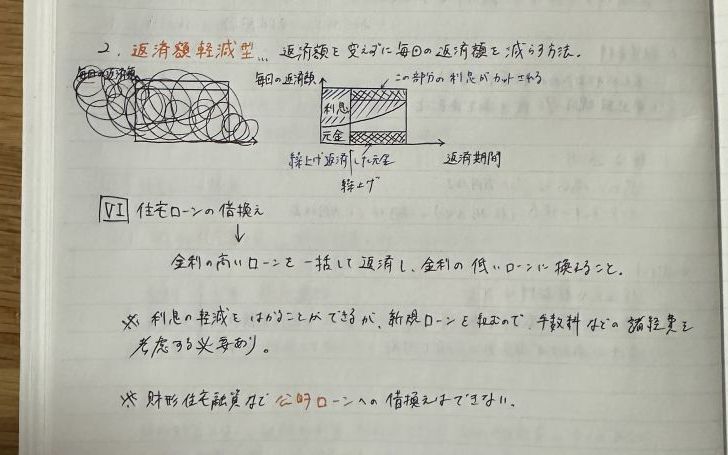 2. 返済額軽減型… 返済額を変えずに毎回の返済額を減らす方法。
毎回の返済額
毎回の返済額
この部分の利息がカットされる
利息
元金
繰上げ返済した元金
返済期間
繰上げ
VI 住宅ローンの借換え
↓
金利の高いローンを一括して返済し、金利の低いローンに換えること。
※ 利息の軽減をはかることができるが、新規ローンを組むので、手数料などの諸経費を
考慮する必要あり。
※ 財形住宅融資など公的ローンへの借換えはできない。